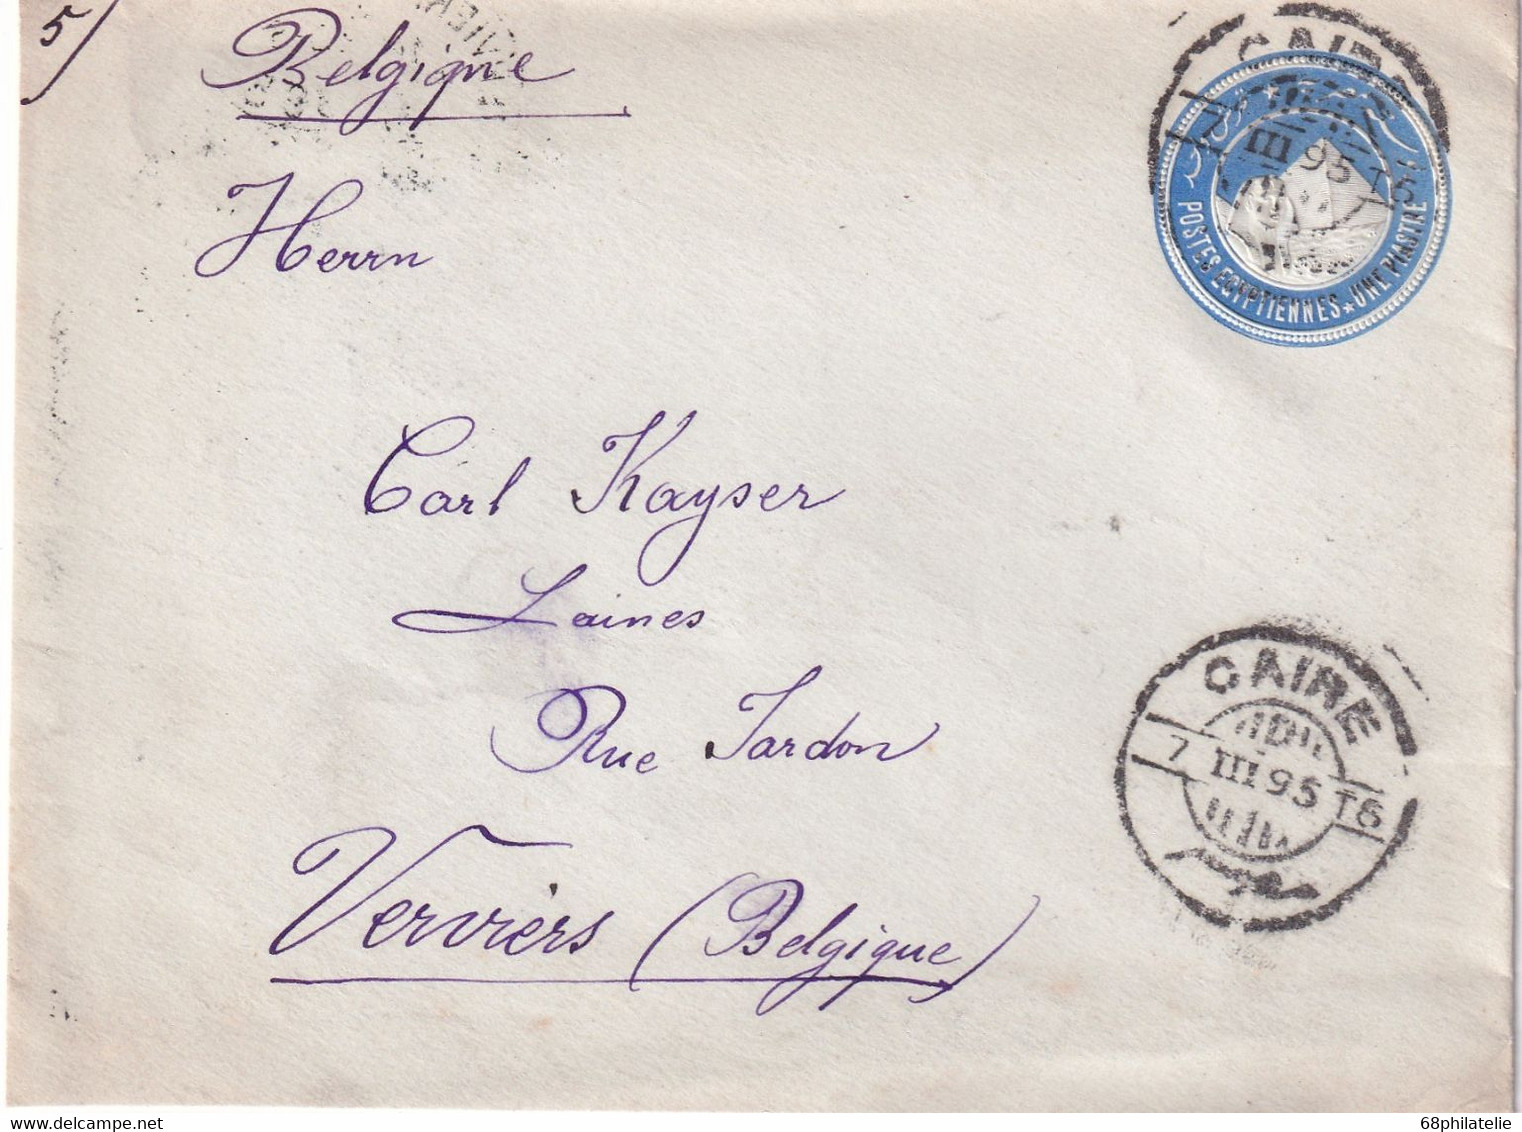 5/
Belgique
Herrn
CAIRE
7 III 95 T6
POSTES EGYPTIENNES ★ UNE PIASTRE
Carl Kayser
Laines
Rue Jardon
Verviers (Belgique)
CAIRE
7 III 95 T6
delcampe.net
68philatelie